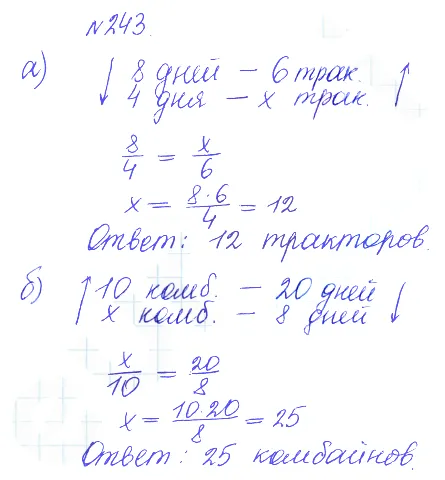 №243.
а) ↓ 8 дней – 6 трак. ↑
4 дня – х трак.
8/4 = х/6
х = 8·6/4 = 12
Ответ: 12 тракторов.
б) ↑ 10 комб. – 20 дней ↓
х комб. – 8 дней
х/10 = 20/8
х = 10·20/8 = 25
Ответ: 25 комбайнов.